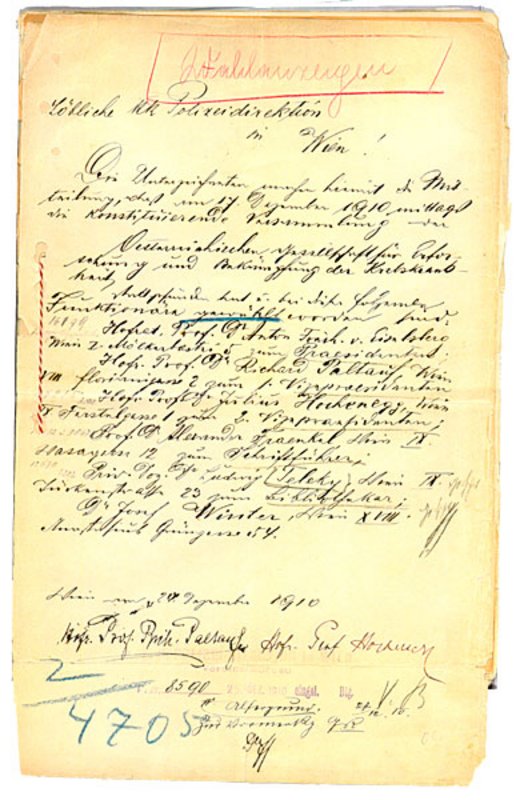 Wahlanzeigen
Löbliche k.k. Polizeidirektion
in
Wien!
Die Unterzeichneten machen hiermit die Mit-
teilung, dass am 17 Dezember 1910 mittags
die konstituierende Versammlung der
Oesterreichischen Gesellschaft für Erfor-
schung und Bekämpfung der Krebskrank-
heit
stattgefunden hat u. bei dieser folgende
Funktionäre gewählt worden sind:
Hofrat Prof. Dr Anton Freih. v. Eiselsberg
Wien I. Mölkerbastei 5 zum Praesidenten;
Hofr. Prof. Dr Richard Paltauf, Wien
VIII Florianigasse 2 zum 1. Vizepraesidenten
Hofr. Prof. Dr Julius Hochenegg, Wien
IX Ferstelgasse 1 zum 2. Vizepraesidenten;
Prof. Dr Alexander Fraenkel Wien IX
Wasagasse 12 zum Schriftführer;
Priv. Doz. Dr Ludwig Teleky Wien IX.
Türkenstrasse 23 zum Bibliothekar;
Dr Josef Winter, Wien XVIII.
Anastasius Grüngasse 54.
Wien am 24 Dezember 1910
Hofr. Prof. Rich. Paltauf Hofr. Prof Hochenegg
2
8590
4705